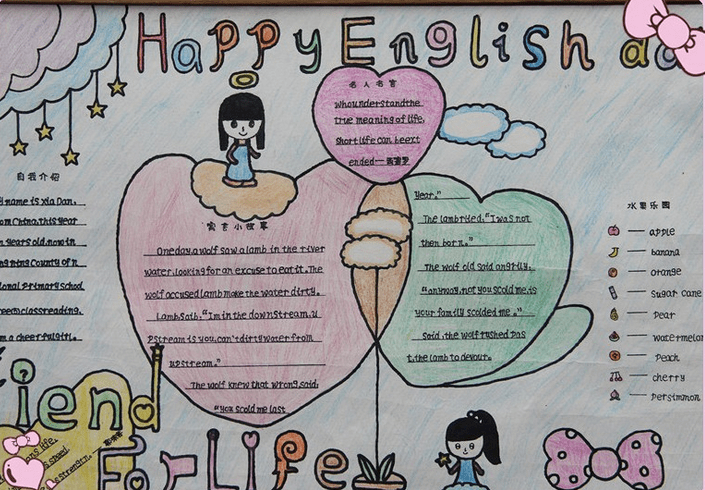 Happy English
名人名言
Whounderstandthe
true meaning of life,
Short life can beext
ended—
自我介绍
name is Xia Dan.
China.this year
years old.now in
ning County of n
ional primary school
reading.
m a cheerful girl.
寓言小故事
Oneday.a wolf saw a lamb in the river
water.looking for an excuse to eat it. The
wolf accused lamb make the water dirty.
Lamb saib."Im in the downstream.u
Pstream is you.can't dirty water from
upstream."
The wolf knew that wrong.said:
"You scold me last
year."
The lamb ried."I was not
then born."
The wolf old said angrily.
"anyway.not you scold me.is
your family scolded me."
Said .the wolf rushed pas
t.the lamb to devour.
水果乐园
— apple
— banana
— orange
— Sugar cane
— Pear
— watermelon
— Peach
— cherry
— Persimmon
iend
For Life